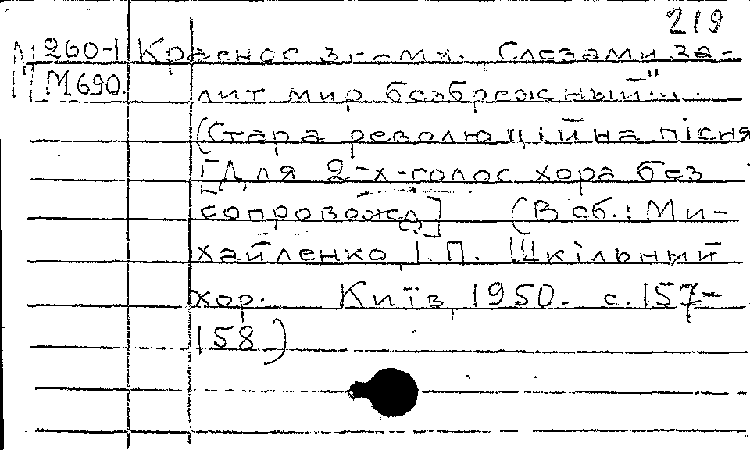 219
М 260-1 Красное знамя. Слезами за-
М М690. лит мир безбрежный"..
(Стара революційна пісня
[Для 2-х-голос хора без
сопровожд] (В сб.: Ми-
хайленко, І.П. Шкільный
хор. Київ, 1950. с.157-
158)